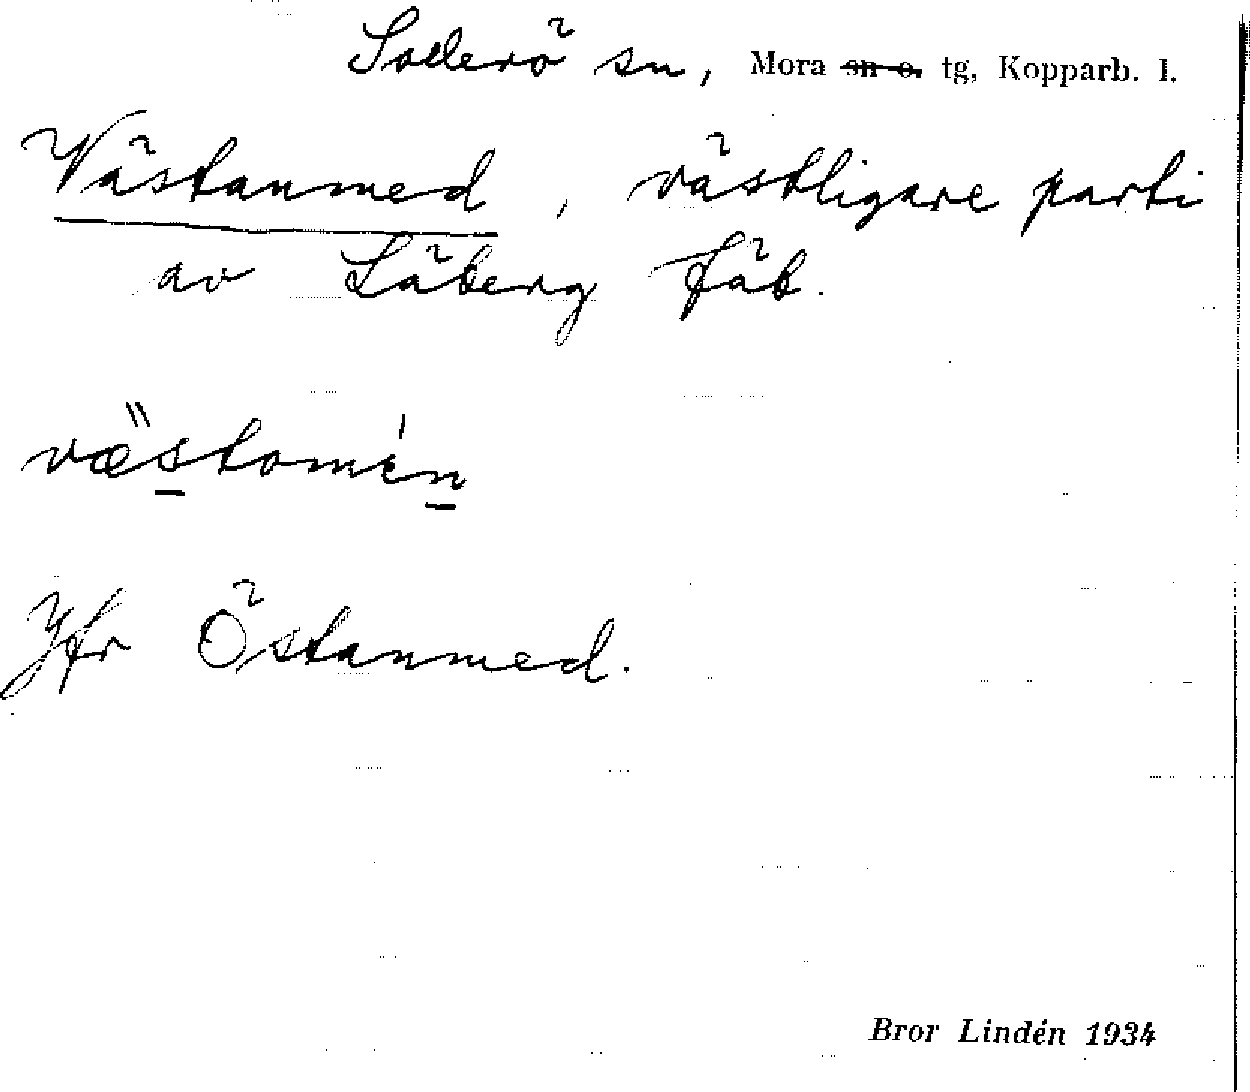 Sollerö sn, Mora sn o. tg, Kopparb. l.
Västanmed, västligare parti
av Läberg fäb.
væ̋stomén
Jfr Östanmed.
Bror Lindén 1934